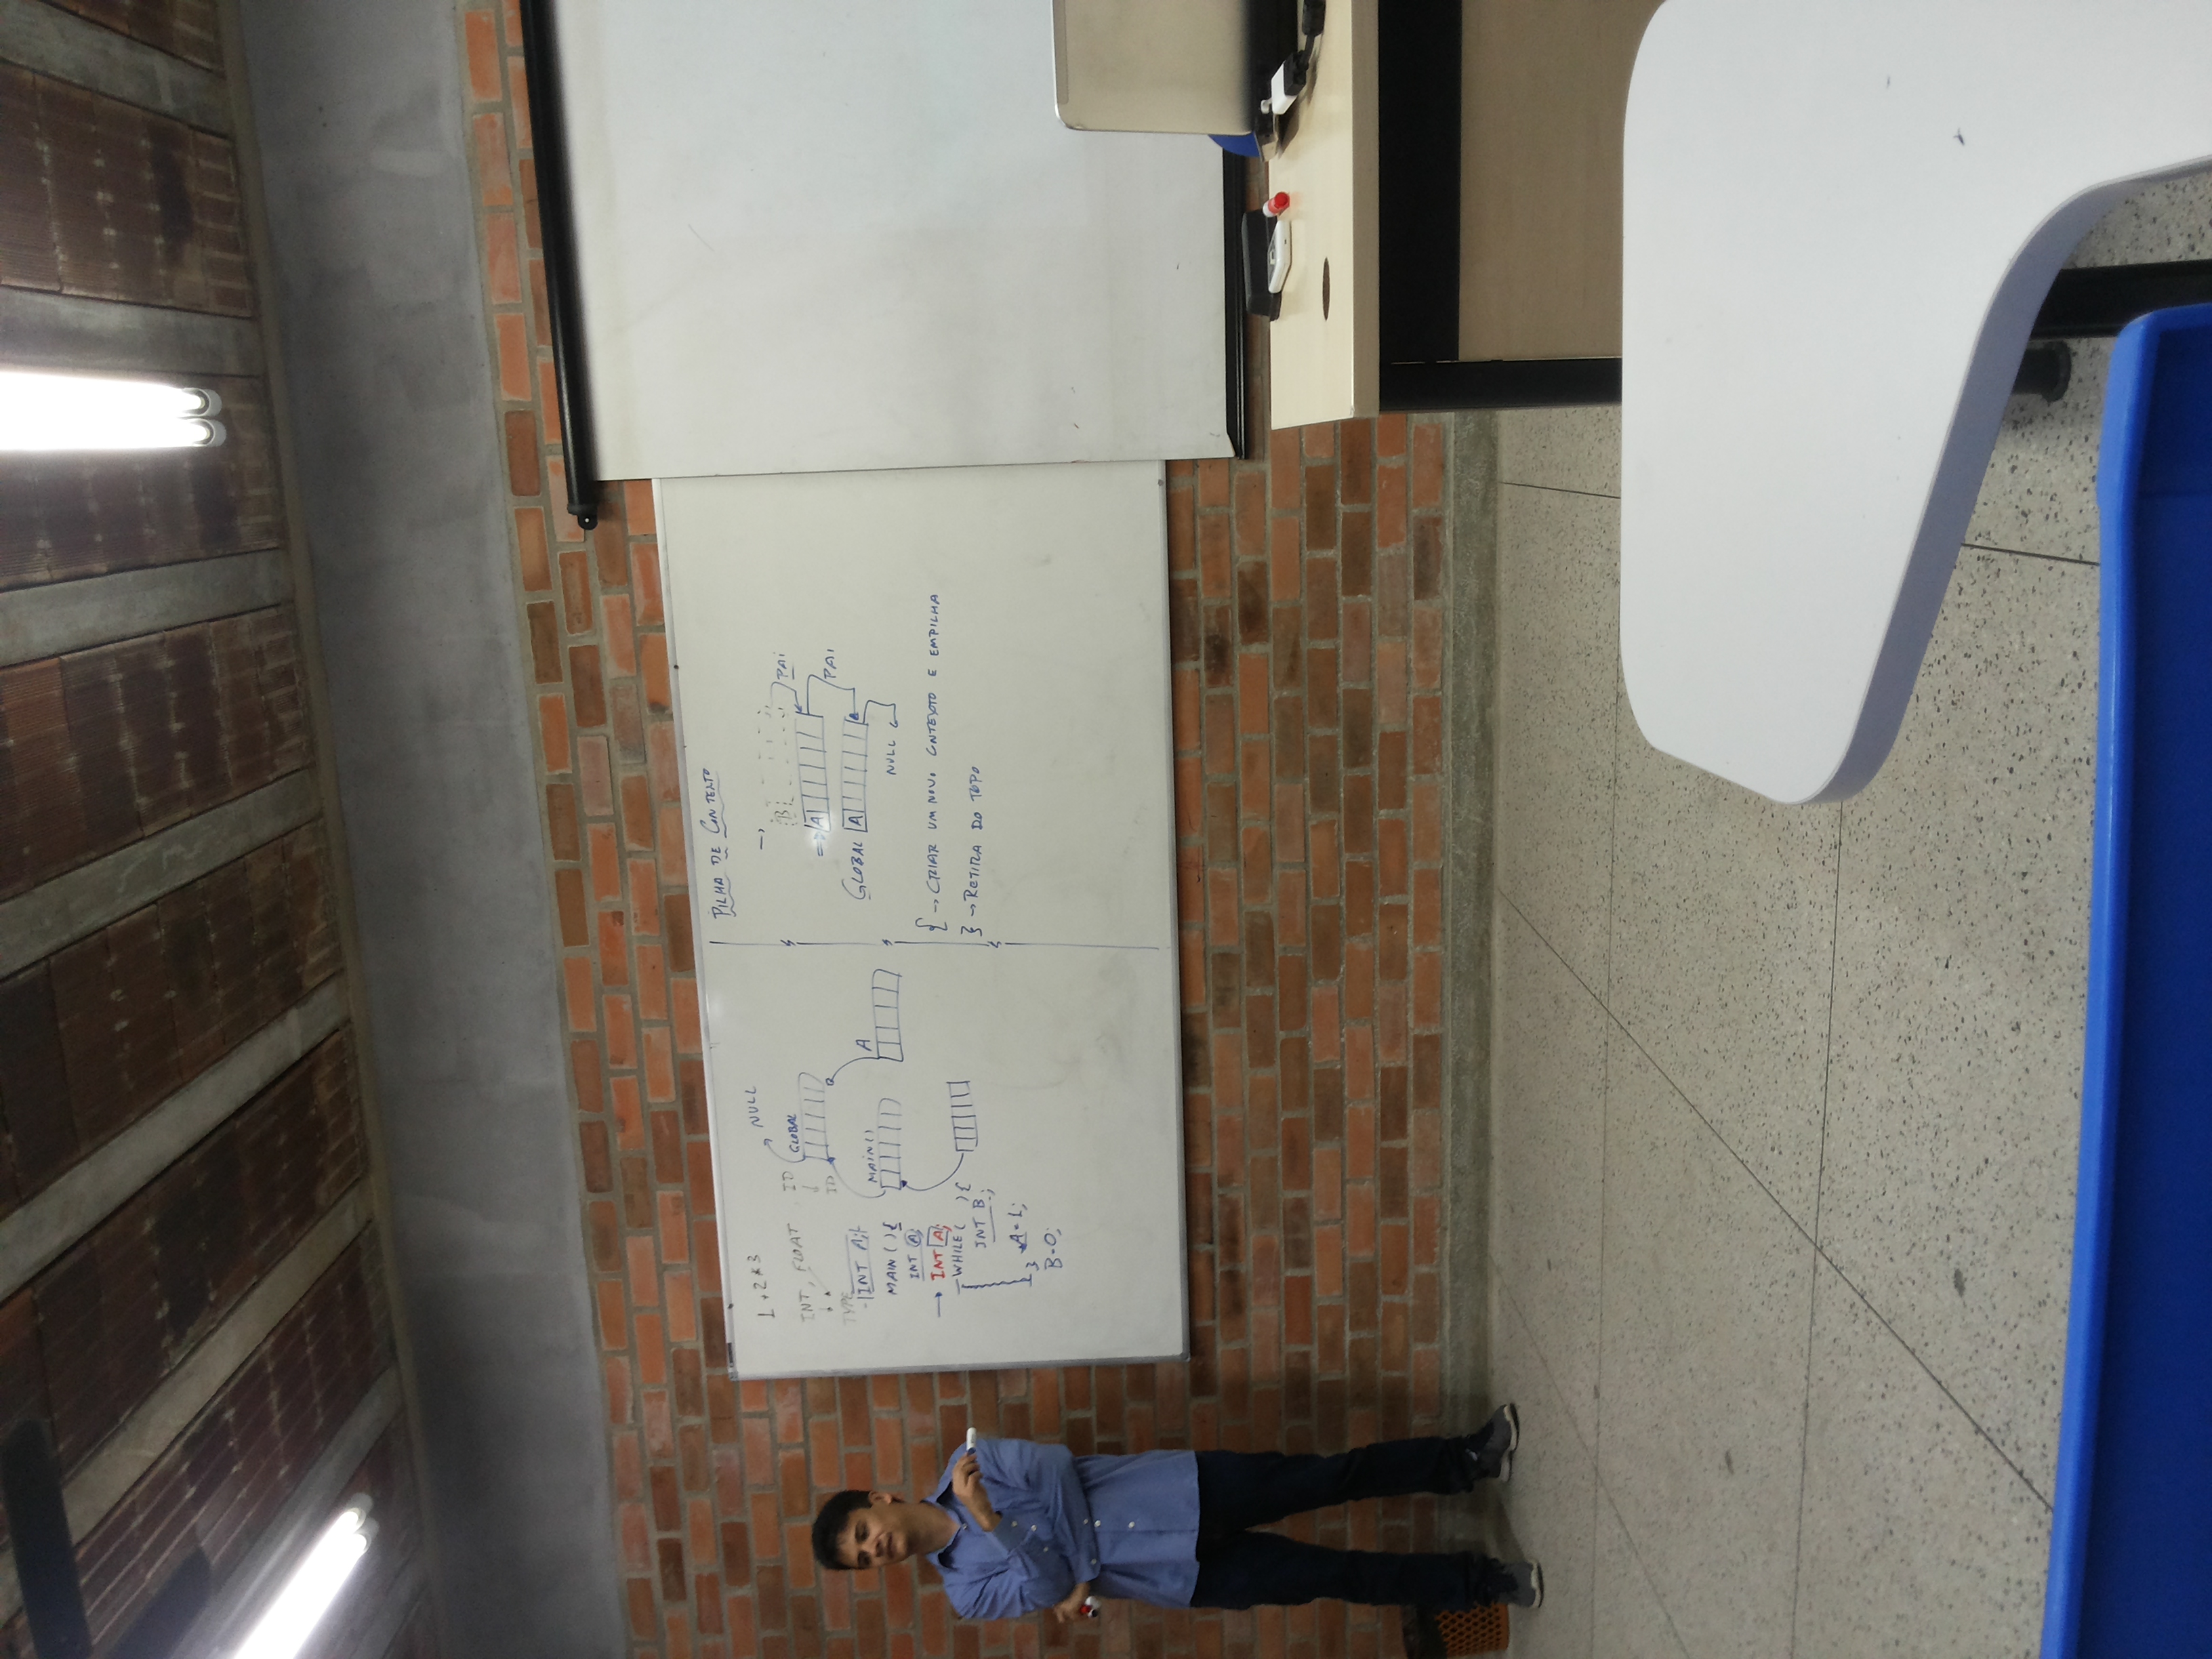 1+2*3
INT, FLOAT
TYPE
INT A;
MAIN(){
INT A;
INT A;
WHILE( ){
INT B;
A=1;
}
B=0;
NULL
ID
GLOBAL
ID
MAIN()
A
PILHA DE CONTEXTO
B
PAI
A
PAI
GLOBAL A
NULL
{ → CRIAR UM NOVO CONTEXTO E EMPILHA
} → RETIRA DO TOPO